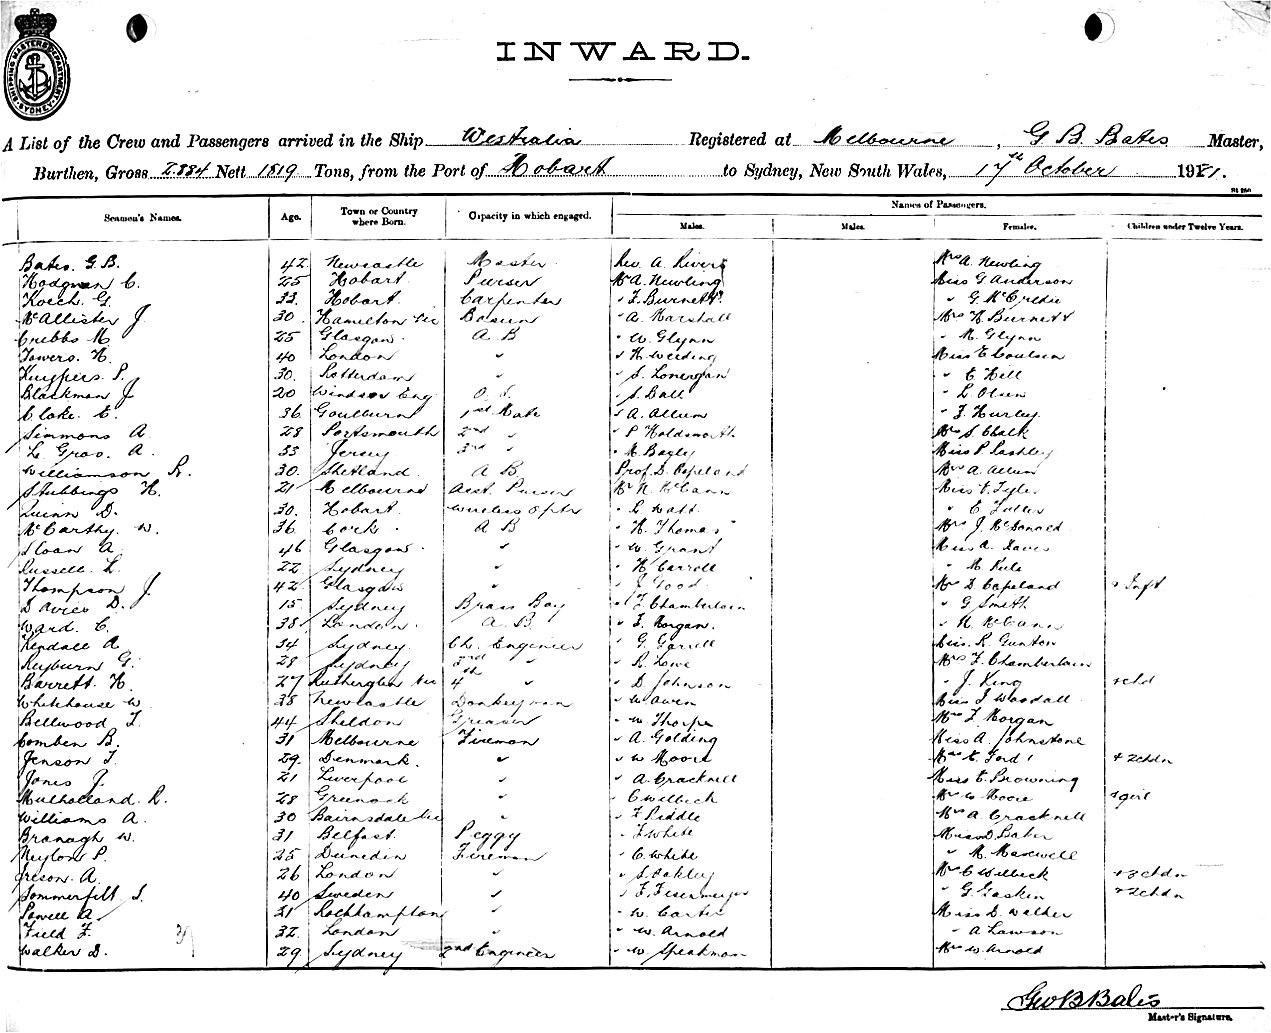 SHIPPING MASTERS DEPARTMENT SYDNEY
INWARD.
A List of the Crew and Passengers arrived in the Ship Westralia Registered at Melbourne, G B. Bates Master,
Burthen, Gross 2884 Nett 1819 Tons, from the Port of Hobart to Sydney, New South Wales, 17th October 1921.
Seamen's Names. Age. Town or Country where Born. Capacity in which engaged. Names of Passengers.
Males. Males. Females. Children under Twelve Years.
Bates. G.B. 42 Newcastle Master Rev. A. Rivers Mrs A. Newling
Hodgman C. 25 Hobart Purser Mr A. Newling Miss G. Anderson
Koech G. 33 Hobart Carpenter " F. Burnett " G. McCredie
McAllister J 30 Hamilton Vic Bosun " A. Marshall Mrs H. Burnett
Cribbs M 25 Glasgow A B " W. Glynn " M. Glynn
Towers. H. 40 London " " H. Weeding Miss E Coulson
Kuypers. P. 30 Rotterdam " " S. Lonergan " E Hill
Blackman J 20 Windsor Eng O. S. " S. Ball " L. Olsen
Cloke. E. 36 Goulburn 1st Mate " A. Allum " F. Hurley
Simmons A. 28 Portsmouth 2nd " " P Holdsworth Mrs S. Chalk
Le Gros. A. 33 Jersey 3rd " " M. Bagly Miss P. Lashley
Williamson R. 30. Shetland. A B Prof. D. Copeland Mrs A. Allum
Stubbings H. 21 Melbourne Asst. Purser Mr N. McCann Miss F. Tyler
Quinn D. 30. Hobart. Wireless Optr " C Watt " C Fuller
McCarthy. W. 36 Cork. A B " H. Thomas Mrs J. McDonald
Sloan A. 46 Glasgow. " " W. Grant Miss A. Davis
Russell. L. 22 Sydney " " H Carroll " M. Kile
Thompson J. 42 Glasgow " " J. Good. Mrs D Copeland & Inft
Davies D. 15 Sydney Brass Boy " F. Chamberlain " G Smith
Ward. C. 38 London. A. B. " F. Morgan. " N McCann
Kendall A 34 Sydney. Ch. Engineer " G. Garrell Miss. R. Gunton
Reyburn G. 28 Sydney. 3rd " " R. Lowe Mrs F. Chamberlain
Barrett. H. 27 Rutherglen Vic 4th " " D Johnson " J. King & chd
Whitehouse W. 28 Newcastle Donkeyman " W Owen Miss J Woodall
Bellwood T. 44 Sheldon Greaser " W Thorpe Mrs F. Morgan
Comben B. 31 Melbourne Fireman " A. Golding Miss A. Johnstone
Jenson T. 29. Denmark. " " W Moore Mrs E. Ford & 2 chdn
Jones J. 21 Liverpool " " A. Cracknell Miss E. Browning
Mulholland. R. 28 Greenock " " C Welbeck Mrs W Moore & girl
Williams A. 30 Bairnsdale Vic " " F Piddle Mrs A Cracknell
Branagh W. 31 Belfast. Peggy " F White Miss D. Baker
Neylon P. 25 Dunedin Fireman " C. White " M. Maxwell
Ireson. A. 26 London " " S. Oakley Mrs C Welbeck & 3 chdn
Sommerfilt. S. 40 Sweden " " F. " G. Gaskin & 2 chdn
Powell A. 21 Rockhampton " " W. Carter Miss D. Walker
Field F. 32. London " " W. Arnold " A Lawson
Walker D. 29 Sydney 2nd Engineer " W. Speakman Mrs W. Arnold
Geo B Bates
Master's Signature.